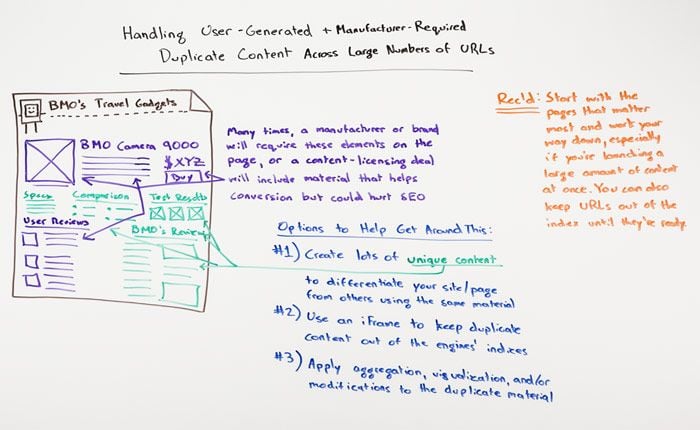 Handling User-Generated + Manufacturer-Required
Duplicate Content Across Large Numbers of URLs
BMO's Travel Gadgets
BMO Camera 9000
$XYZ
Buy
Specs
Comparison
Test Results
User Reviews
BMO's Review
Many times, a manufacturer or brand
will require these elements on the
page, or a content-licensing deal
will include material that helps
conversion but could hurt SEO
Options to Help Get Around This:
#1) Create lots of unique content
to differentiate your site/page
from others using the same material
#2) Use an iFrame to keep duplicate
content out of the engines' indices
#3) Apply aggregation, visualization, and/or
modifications to the duplicate material
Rec'd: Start with the
pages that matter
most and work your
way down, especially
if you're launching a
large amount of content
at once. You can also
keep URLs out of the
index until they're ready.